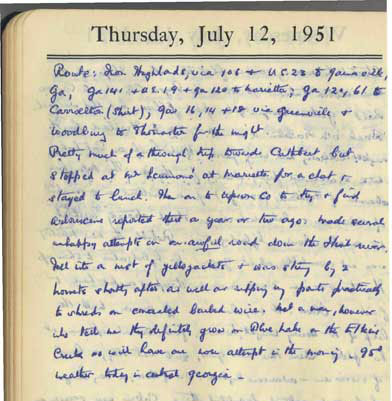 Thursday, July 12, 1951
Route: From Highlands, via 106 + U.S. 23 to Gainesville
Ga, Ga 141 + U.S. 19 + Ga 120 to Marietta; Ga 120, 61 to
Carrollton (Shirt), Gas 16, 14 + 18 via Greenville +
Woodbury to Thomaston for the night.
Pretty much of a through trip towards Cuthbert but
stopped at Mr at Marietta for a chat +
stayed to lunch. Then on to Upson Co to try + find
reported there a year or two ago: made several
unhappy attempts on an awful road down the Flint river.
Fell into a nest of yellowjackets + was stung by 2
hornets shortly after as well as ripping my pants practically
to shreds on concealed barbed wire. Met a man, however
who tell me they definitely grow on Blue Lake on the Elkins
Creek so will have one more attempt in the morning. 95°
weather today in central Georgia -